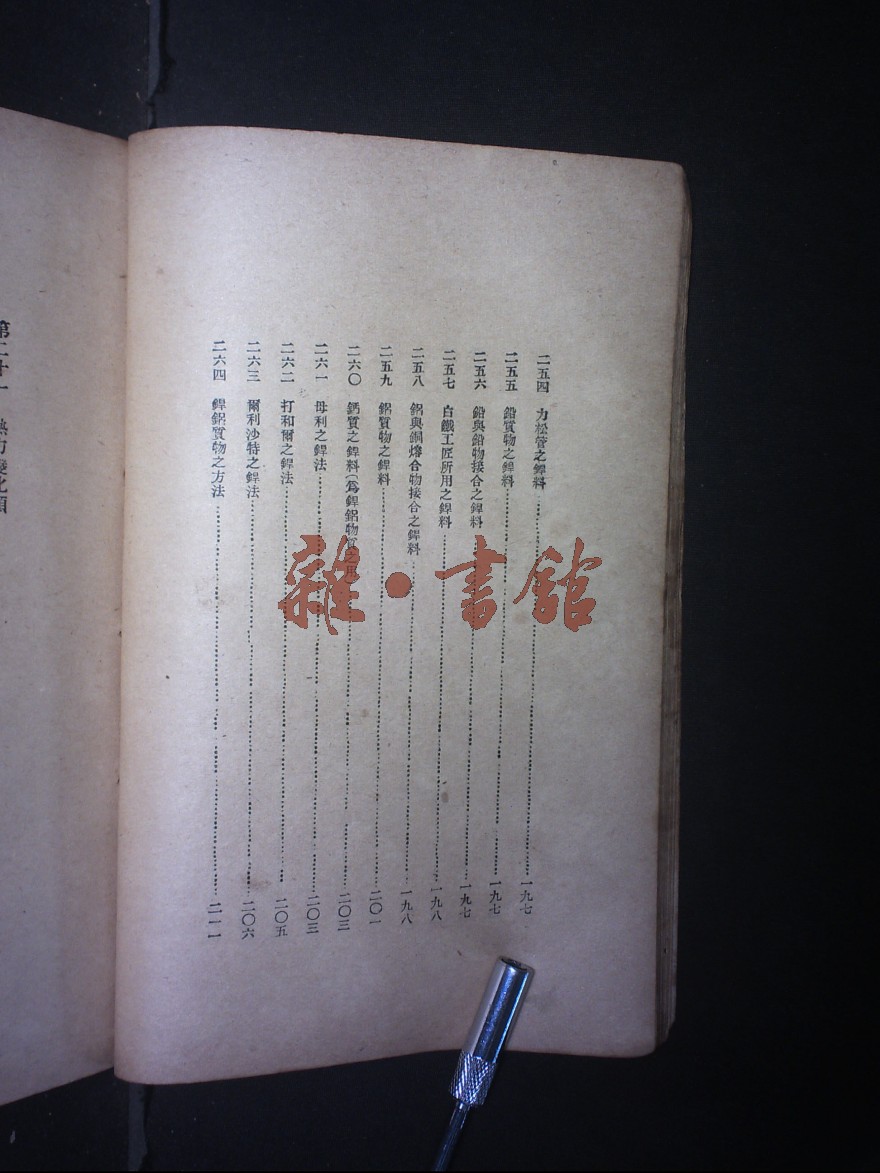 二五四　力松管之銲料…………一九七
二五五　鉛質物之銲料…………一九七
二五六　鉛與鉛物接合之銲料…………一九七
二五七　白鐵工匠所用之銲料…………一九八
二五八　鋁與銅熔合物接合之銲料…………一九八
二五九　鋁質物之銲料…………二〇一
二六〇　鈣質之銲料(爲銲鋁物質之用…………二〇三
二六一　母利之銲法…………二〇三
二六二　打和爾之銲法…………二〇五
二六三　爾利沙特之銲法…………二〇六
二六四　銲鋁質物之方法…………二一一
第二十一　熱力變化類
雜·書館